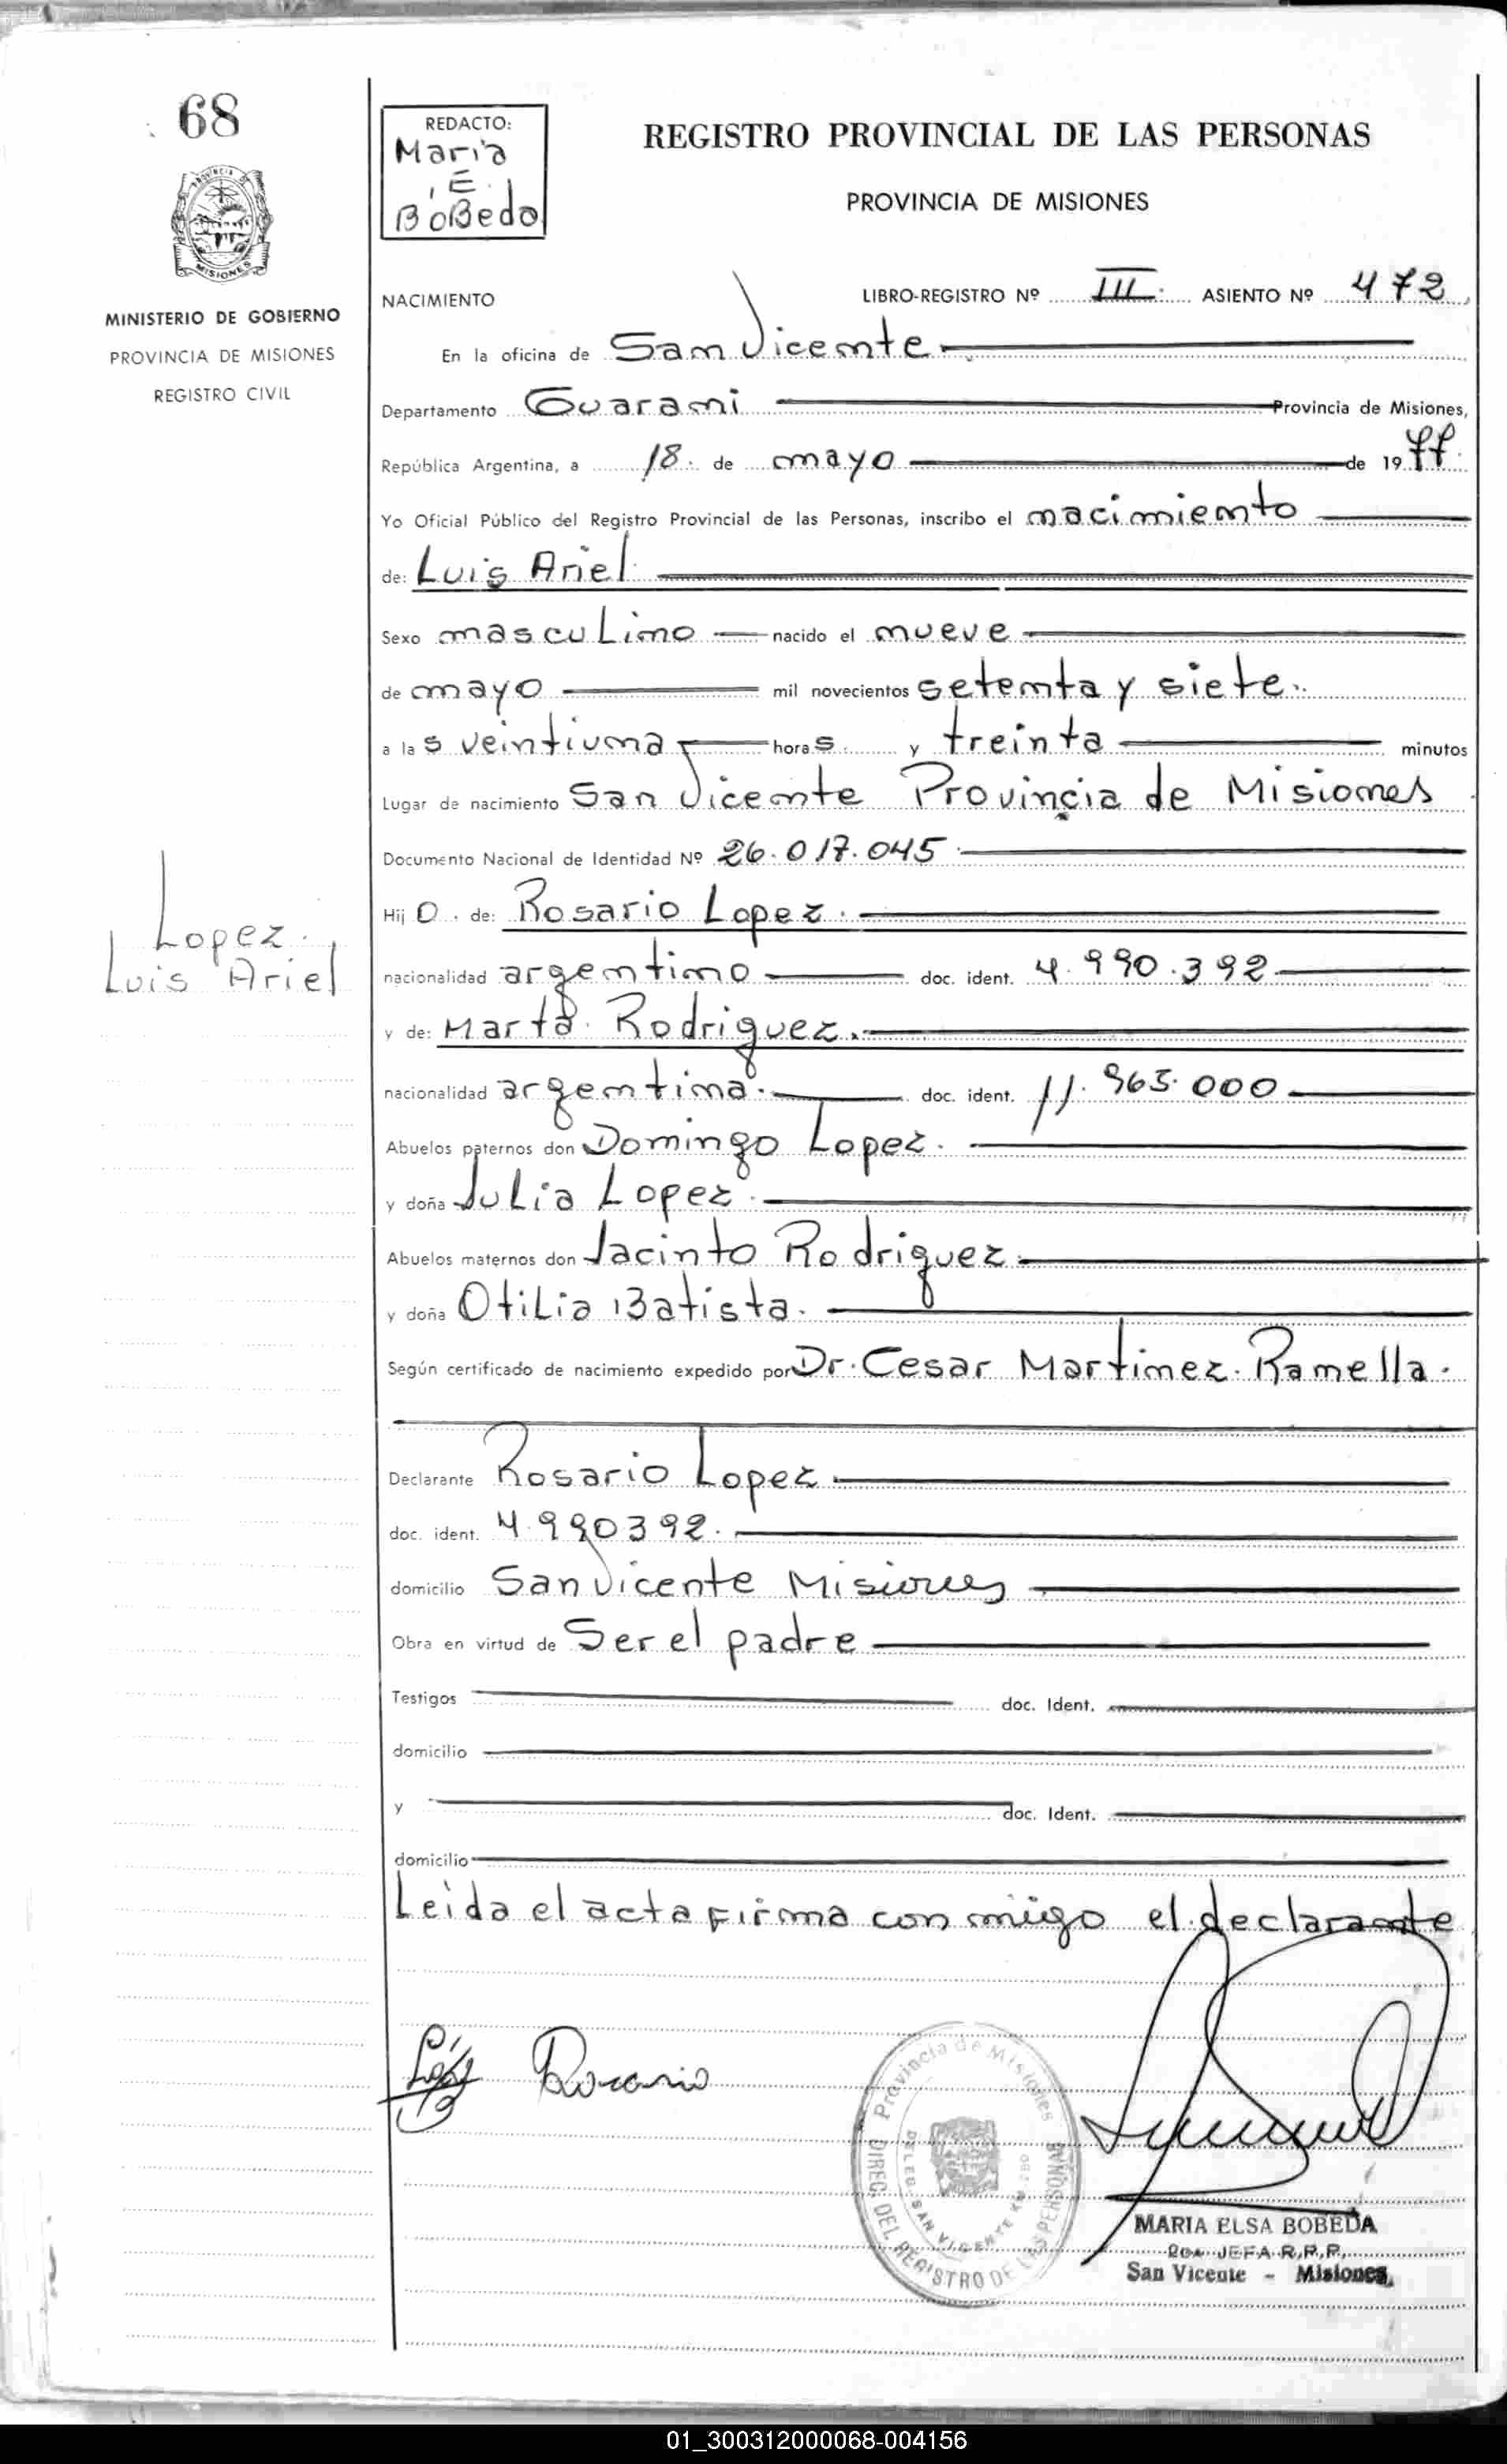 68
MINISTERIO DE GOBIERNO
PROVINCIA DE MISIONES
REGISTRO CIVIL
Lopez.
Luis Ariel
REDACTO:
Maria
E.
BoBedo
REGISTRO PROVINCIAL DE LAS PERSONAS
PROVINCIA DE MISIONES
NACIMIENTO LIBRO-REGISTRO Nº III. ASIENTO Nº 472
En la oficina de San Vicente
Departamento Guarani Provincia de Misiones,
República Argentina, a 18. de mayo de 1977.
Yo Oficial Público del Registro Provincial de las Personas, inscribo el nacimiento
de: Luis Ariel
Sexo masculino nacido el nueve
de mayo mil novecientos setenta y siete.
a las veintiuna horas y treinta minutos
Lugar de nacimiento San Vicente Provincia de Misiones
Documento Nacional de Identidad Nº 26.017.045
Hijo. de: Rosario Lopez.
nacionalidad argentino doc. ident. 4.990.392
y de: Marta Rodriguez.
nacionalidad argentina. doc. ident. 11.963.000
Abuelos paternos don Domingo Lopez.
y doña Julia Lopez.
Abuelos maternos don Jacinto Rodriguez.
y doña Otilia Batista.
Según certificado de nacimiento expedido por Dr. Cesar Martinez. Ramella.
Declarante Rosario Lopez
doc. ident. 4.990392.
domicilio San Vicente Misiones
Obra en virtud de Ser el padre
Testigos doc. Ident.
domicilio
y doc. Ident.
domicilio
Leida el acta firma con migo el declarante
Rosario
Provincia de Misiones
DIREC. DEL REGISTRO DE LAS PERSONAS
DELEG. SAN VICENTE
MARIA ELSA BOBEDA
JEFA R.P.P.
San Vicente - Misiones
01_300312000068-004156